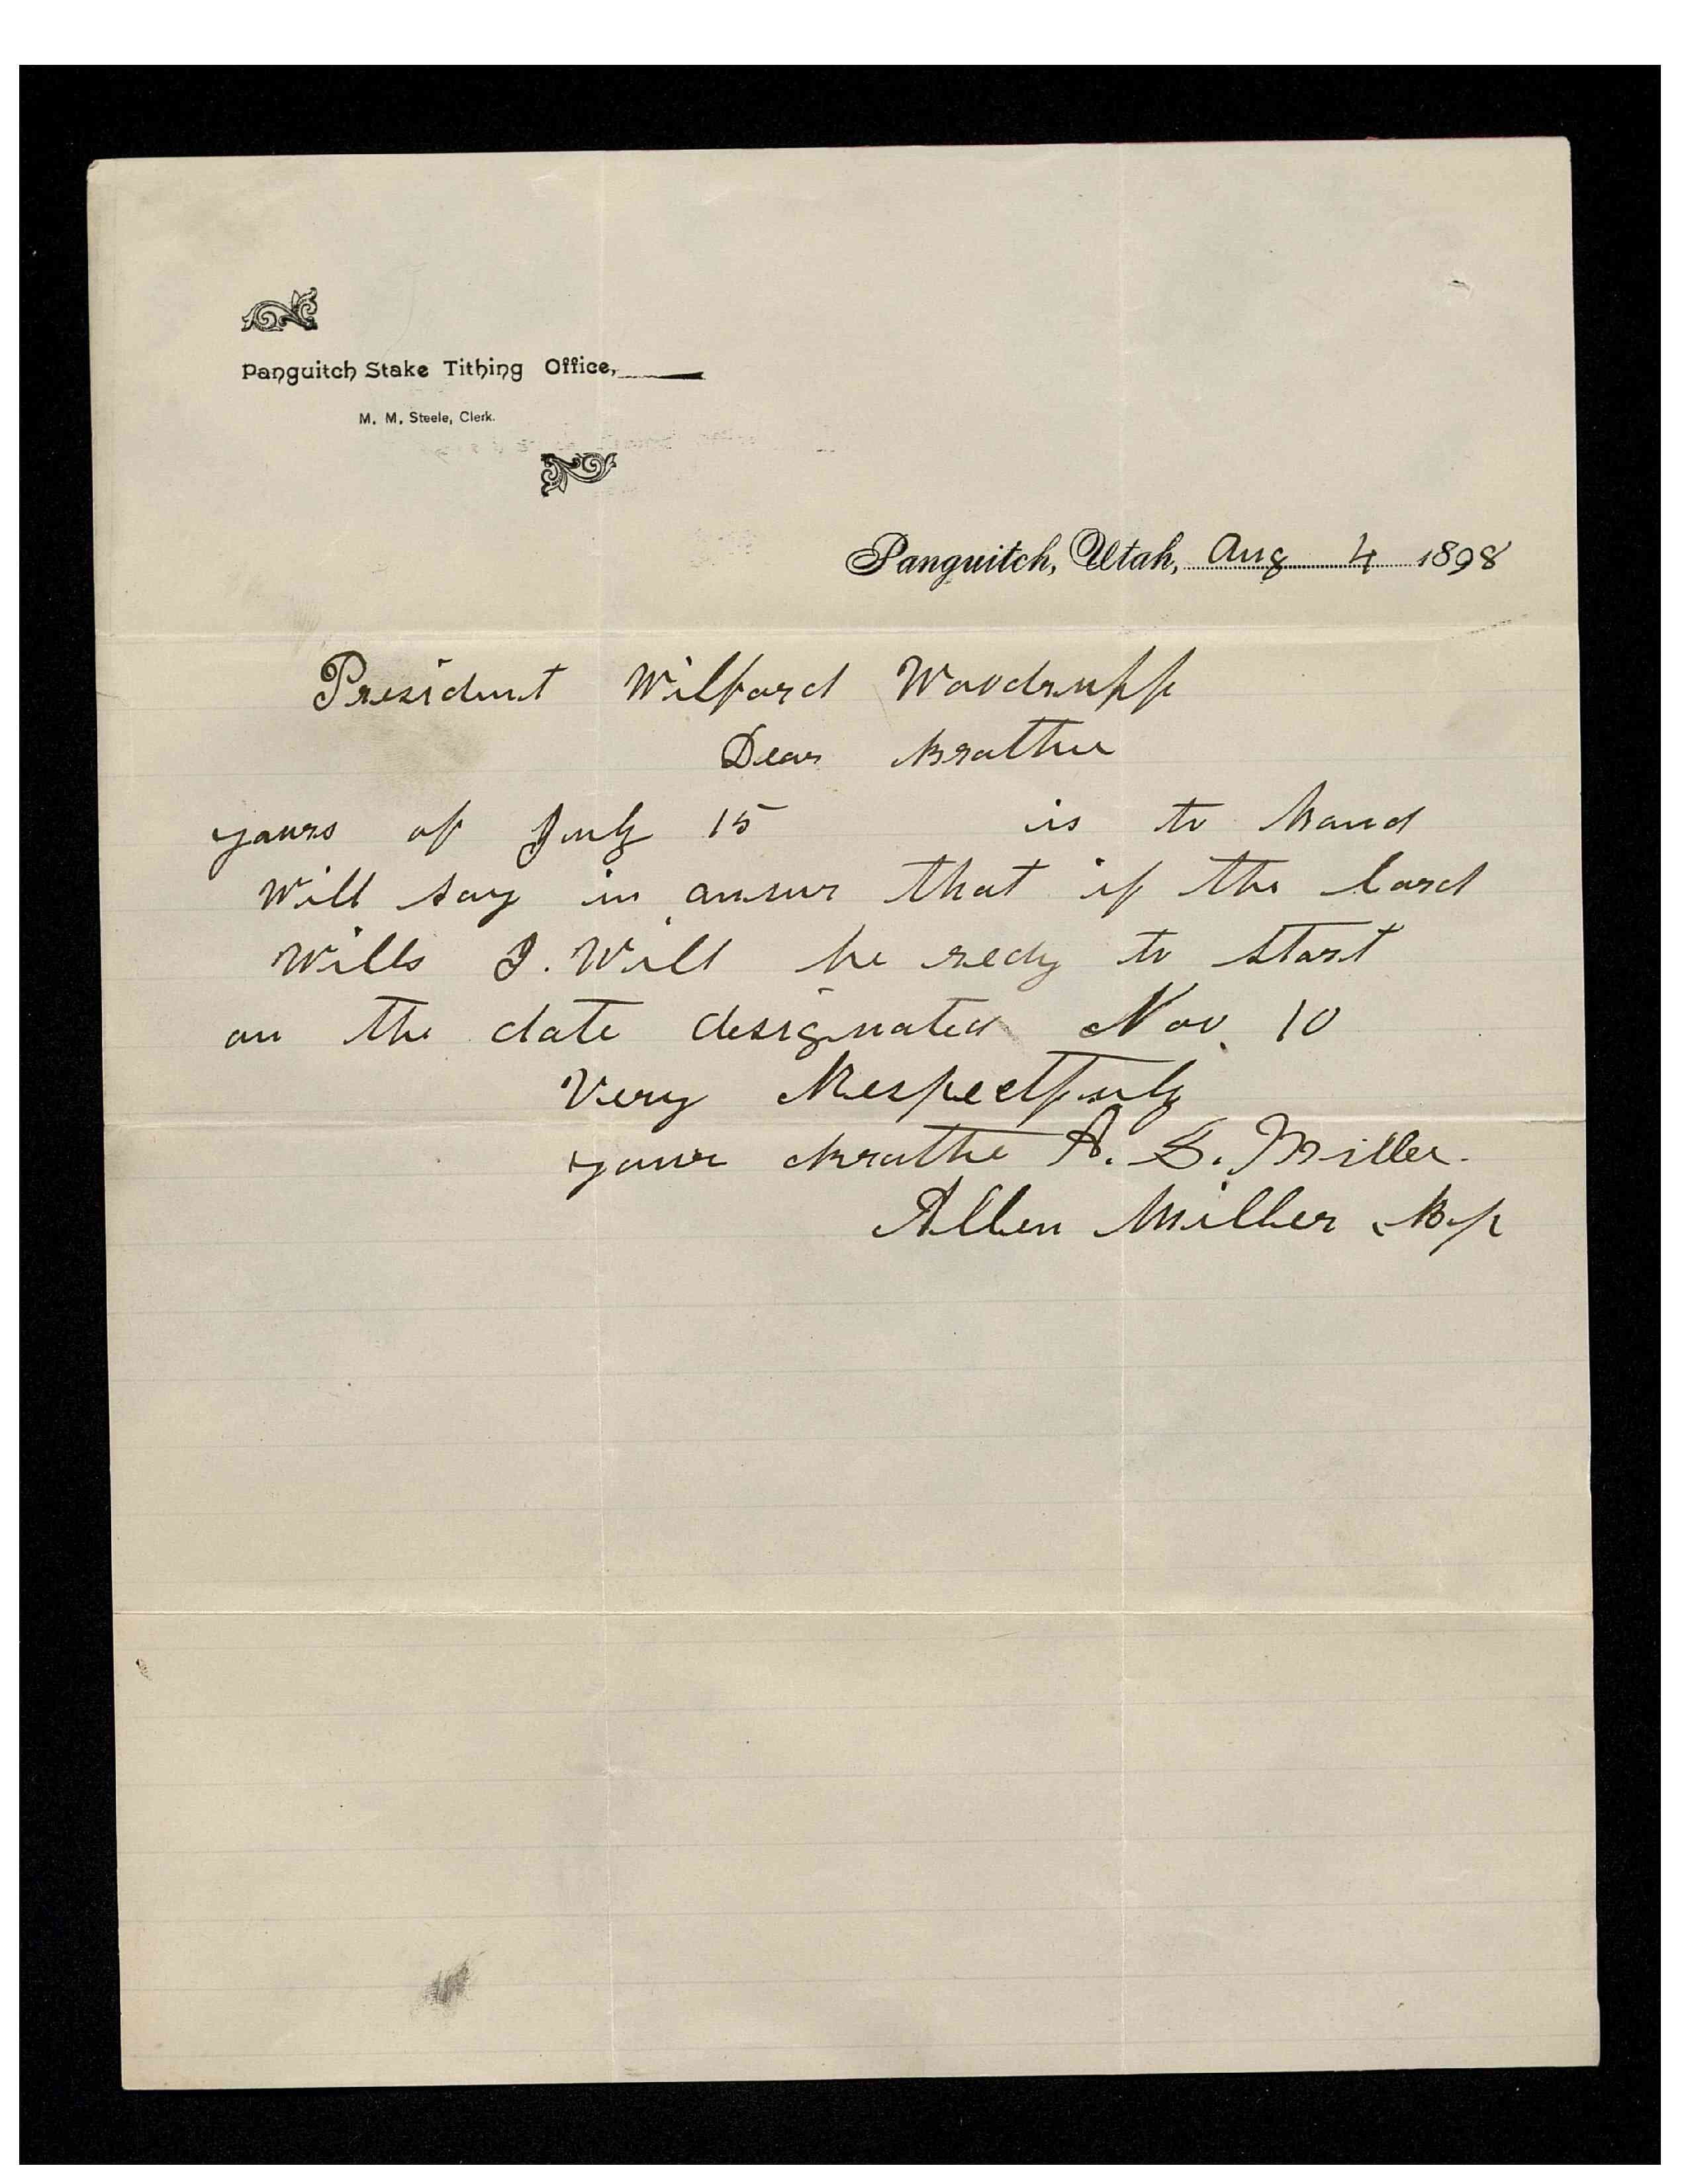 Panguitch Stake Tithing Office,
M. M. Steele, Clerk.
Panguitch, Utah, Aug 4 1898
President Wilford Woodruff
Dear Brother
yours of July 15 is to hand
Will say in answr that if the lord
Wills I. Will be redy to start
on the date designated Nov. 10
Very Respectfuly
your Brothe A. S. Miller.
Allen Miller Bp